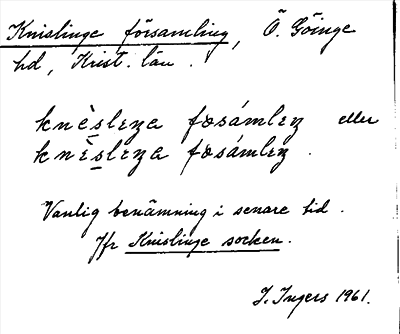 Knislinge församling, Ö. Göinge
hd, Krist. län.
knèsleŋa fosámleŋ eller
knìsleŋa fosámleŋ.
Vanlig benämning i senare tid.
Jfr Knislinge socken.
I. Ingers 1961.